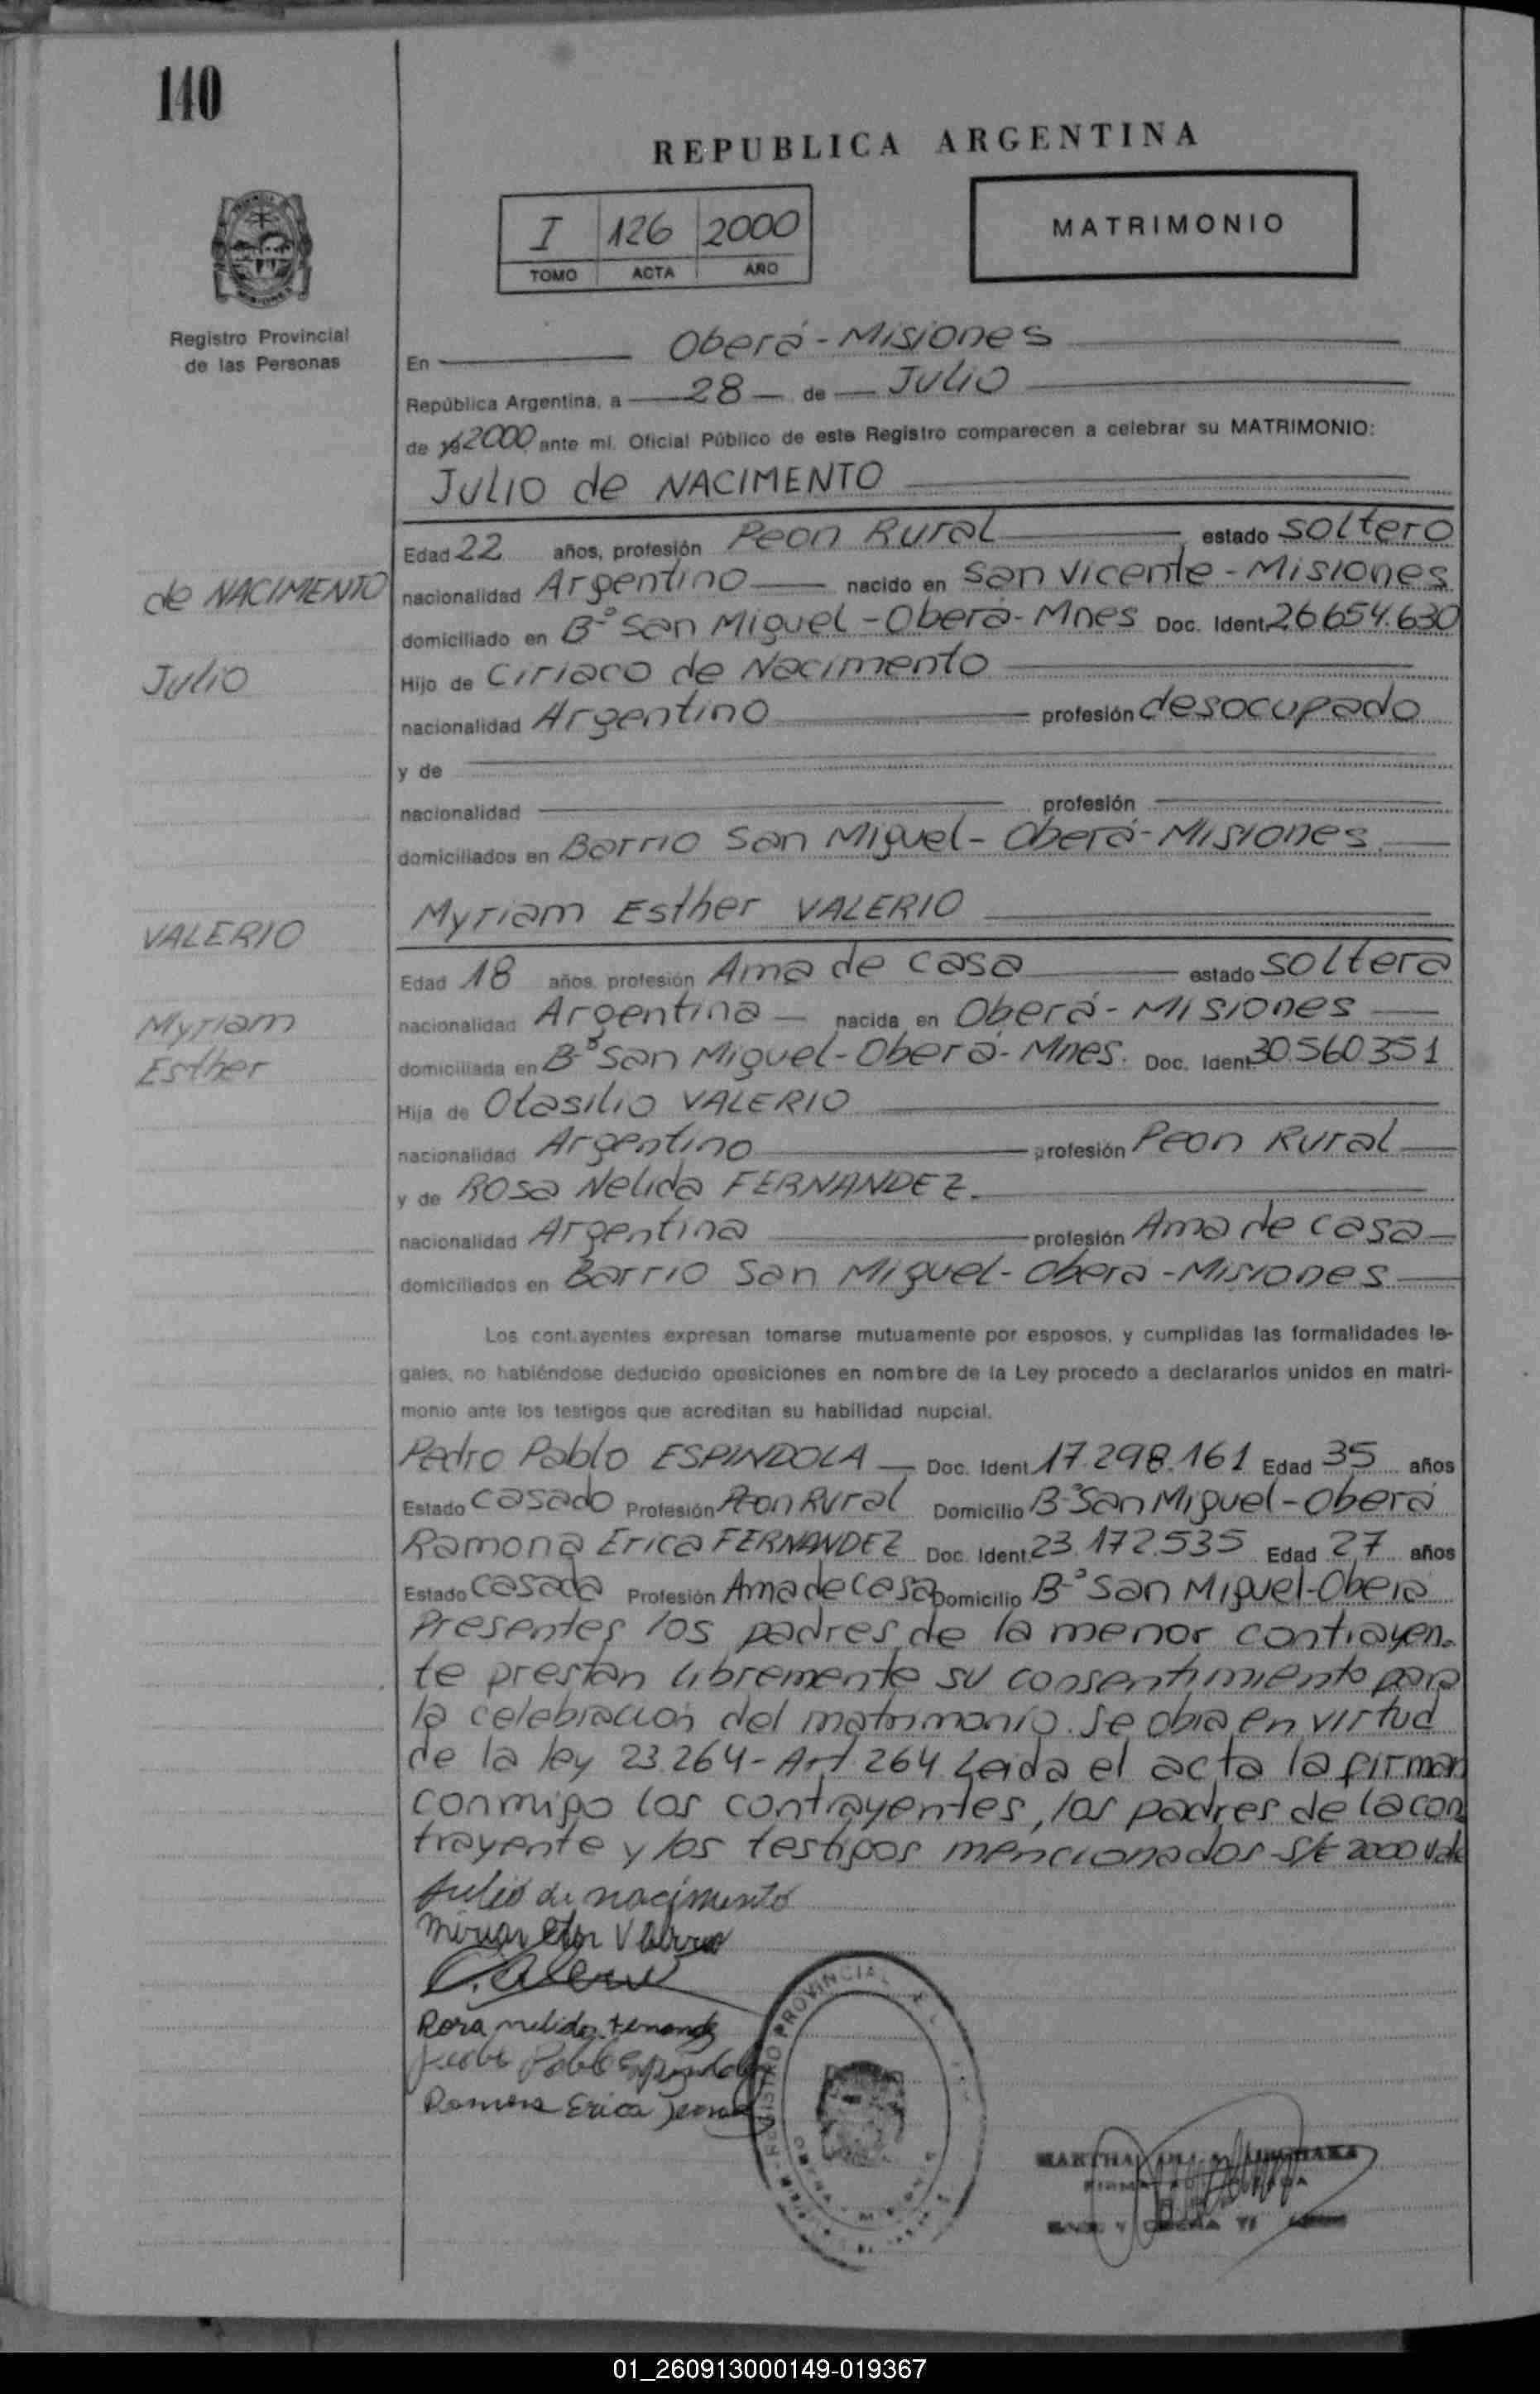 140
REPUBLICA ARGENTINA
I 126 2000
TOMO ACTA AÑO
MATRIMONIO
Registro Provincial
de las Personas
En Oberá - Misiones
República Argentina, a 28 de Julio
de 2000 ante mí, Oficial Público de este Registro comparecen a celebrar su MATRIMONIO:
Julio de NACIMENTO
Edad 22 años, profesión Peon Rural estado soltero
de NACIMENTO
nacionalidad Argentino nacido en San Vicente - Misiones
domiciliado en B° San Miguel - Oberá - Mnes Doc. Ident. 26.654.630
Julio
Hijo de Ciriaco de Nacimento
nacionalidad Argentino profesión desocupado
y de
nacionalidad profesión
domiciliados en Barrio San Miguel - Oberá - Misiones
Myriam Esther VALERIO
VALERIO
Edad 18 años, profesión Ama de casa estado soltera
Myriam
Esther
nacionalidad Argentina nacida en Oberá - Misiones
domiciliada en B° San Miguel - Oberá - Mnes. Doc. Ident. 30.560.351
Hija de Otasilio VALERIO
nacionalidad Argentino profesión Peon Rural
y de Rosa Nelida FERNANDEZ.
nacionalidad Argentina profesión Ama de casa
domiciliados en Barrio San Miguel - Obera - Misiones
Los contrayentes expresan tomarse mutuamente por esposos, y cumplidas las formalidades le-
gales, no habiéndose deducido oposiciones en nombre de la Ley procedo a declararlos unidos en matri-
monio ante los testigos que acreditan su habilidad nupcial.
Pedro Pablo ESPINDOLA Doc. Ident. 17.298.161 Edad 35 años
Estado casado Profesión Peon Rural Domicilio B° San Miguel - Oberá
Ramona Erica FERNANDEZ Doc. Ident. 23.172.535 Edad 27 años
Estado casada Profesión Ama de casa Domicilio B° San Miguel - Oberá
Presentes los padres de la menor contrayen-
te prestan libremente su consentimiento para
la celebración del matrimonio. Se obra en virtud
de la ley 23.264 - Art. 264. Leida el acta la firman
conmigo los contrayentes, los padres de la con
trayente y los testigos mencionados - S/E 2000 Vale
Julio de nacimento
Rosa nelida
Pablo
Ramona Erica
REGISTRO PROVINCIAL
MARTHA
01_260913000149-019367